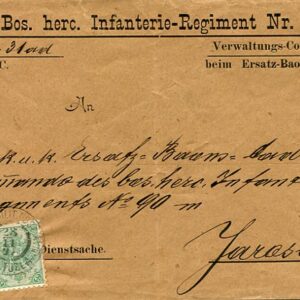 Bos. herc. Infanterie-Regiment Nr.
Verwaltungs-Co
C. beim Ersatz-Bao
An
k. u. k. Ersatz-Baons-Cad
mando des bos. herc. Infan
giments No 90 in
Dienstsache.
Jaros